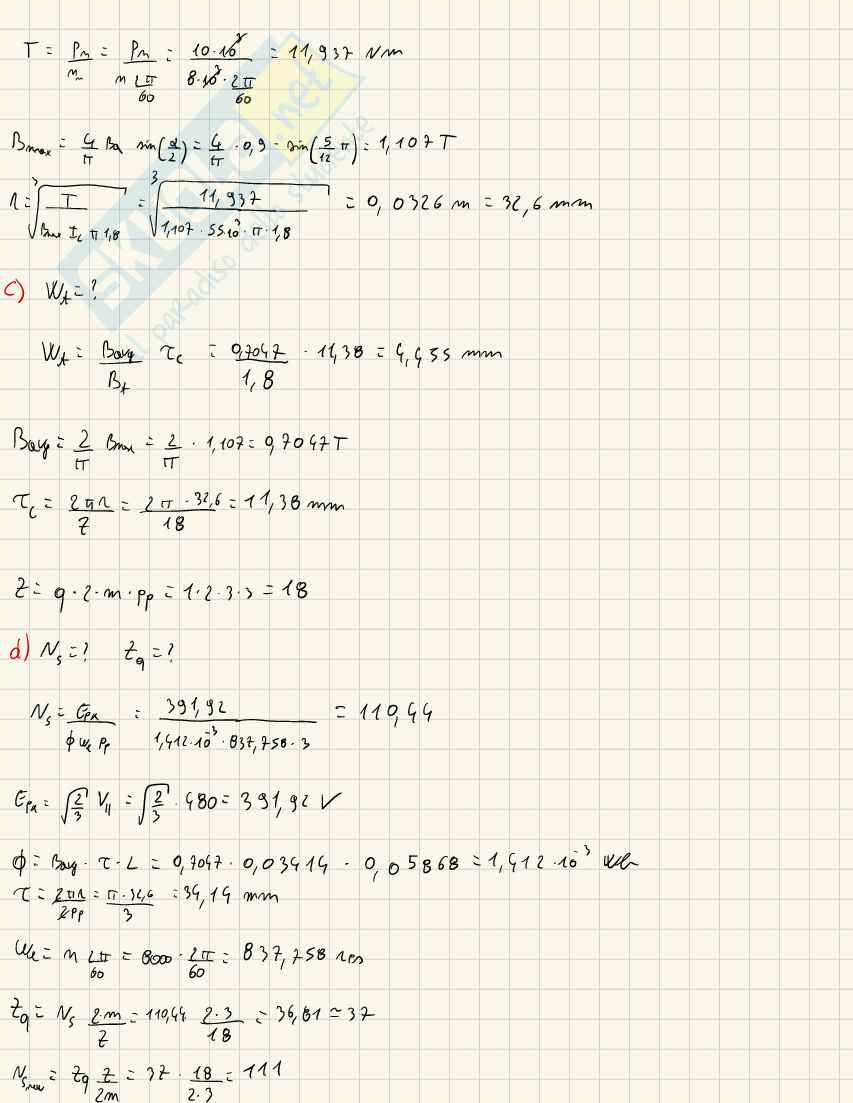 T = Pn/nn = Pn/(n 2π/60) = 10·10³/(8·10³·2π/60) = 11,937 Nm
Bmax = 4/π Ba sin(α/2) = 4/π · 0,9 · sin(5/12 π) = 1,107 T
r = ³√(T/(Bmax IL π 1,8)) = ³√(11,937/(1,107 · 55·10³ · π · 1,8)) = 0,0326 m = 32,6 mm
c) Wt = ?
Wt = Bavg/Bt τc = 0,7047/1,8 · 11,38 = 4,455 mm
Bavg = 2/π Bmax = 2/π · 1,107 = 0,7047 T
τc = 2πr/Z = 2π · 32,6/18 = 11,38 mm
Z = q · 2 · m · pp = 1·2·3·3 = 18
d) Ns = ? Zq = ?
Ns = Epk/(ϕ ωr pp) = 391,92/(1,412·10⁻³ · 837,758 · 3) = 110,44
Epk = √(2/3) Vll = √(2/3) · 480 = 391,92 V
ϕ = Bavg · τ · L = 0,7047 · 0,03414 · 0,05868 = 1,412 · 10⁻³ Wb
τ = 2πr/2pp = π · 32,6/3 = 34,14 mm
ωr = n 2π/60 = 8000 · 2π/60 = 837,758 rps
Zq = Ns 2·m/Z = 110,44 2·3/18 = 36,81 ≃ 37
Ns,new = Zq Z/2m = 37 · 18/2·3 = 111
skuola.net
il paradiso dello studente